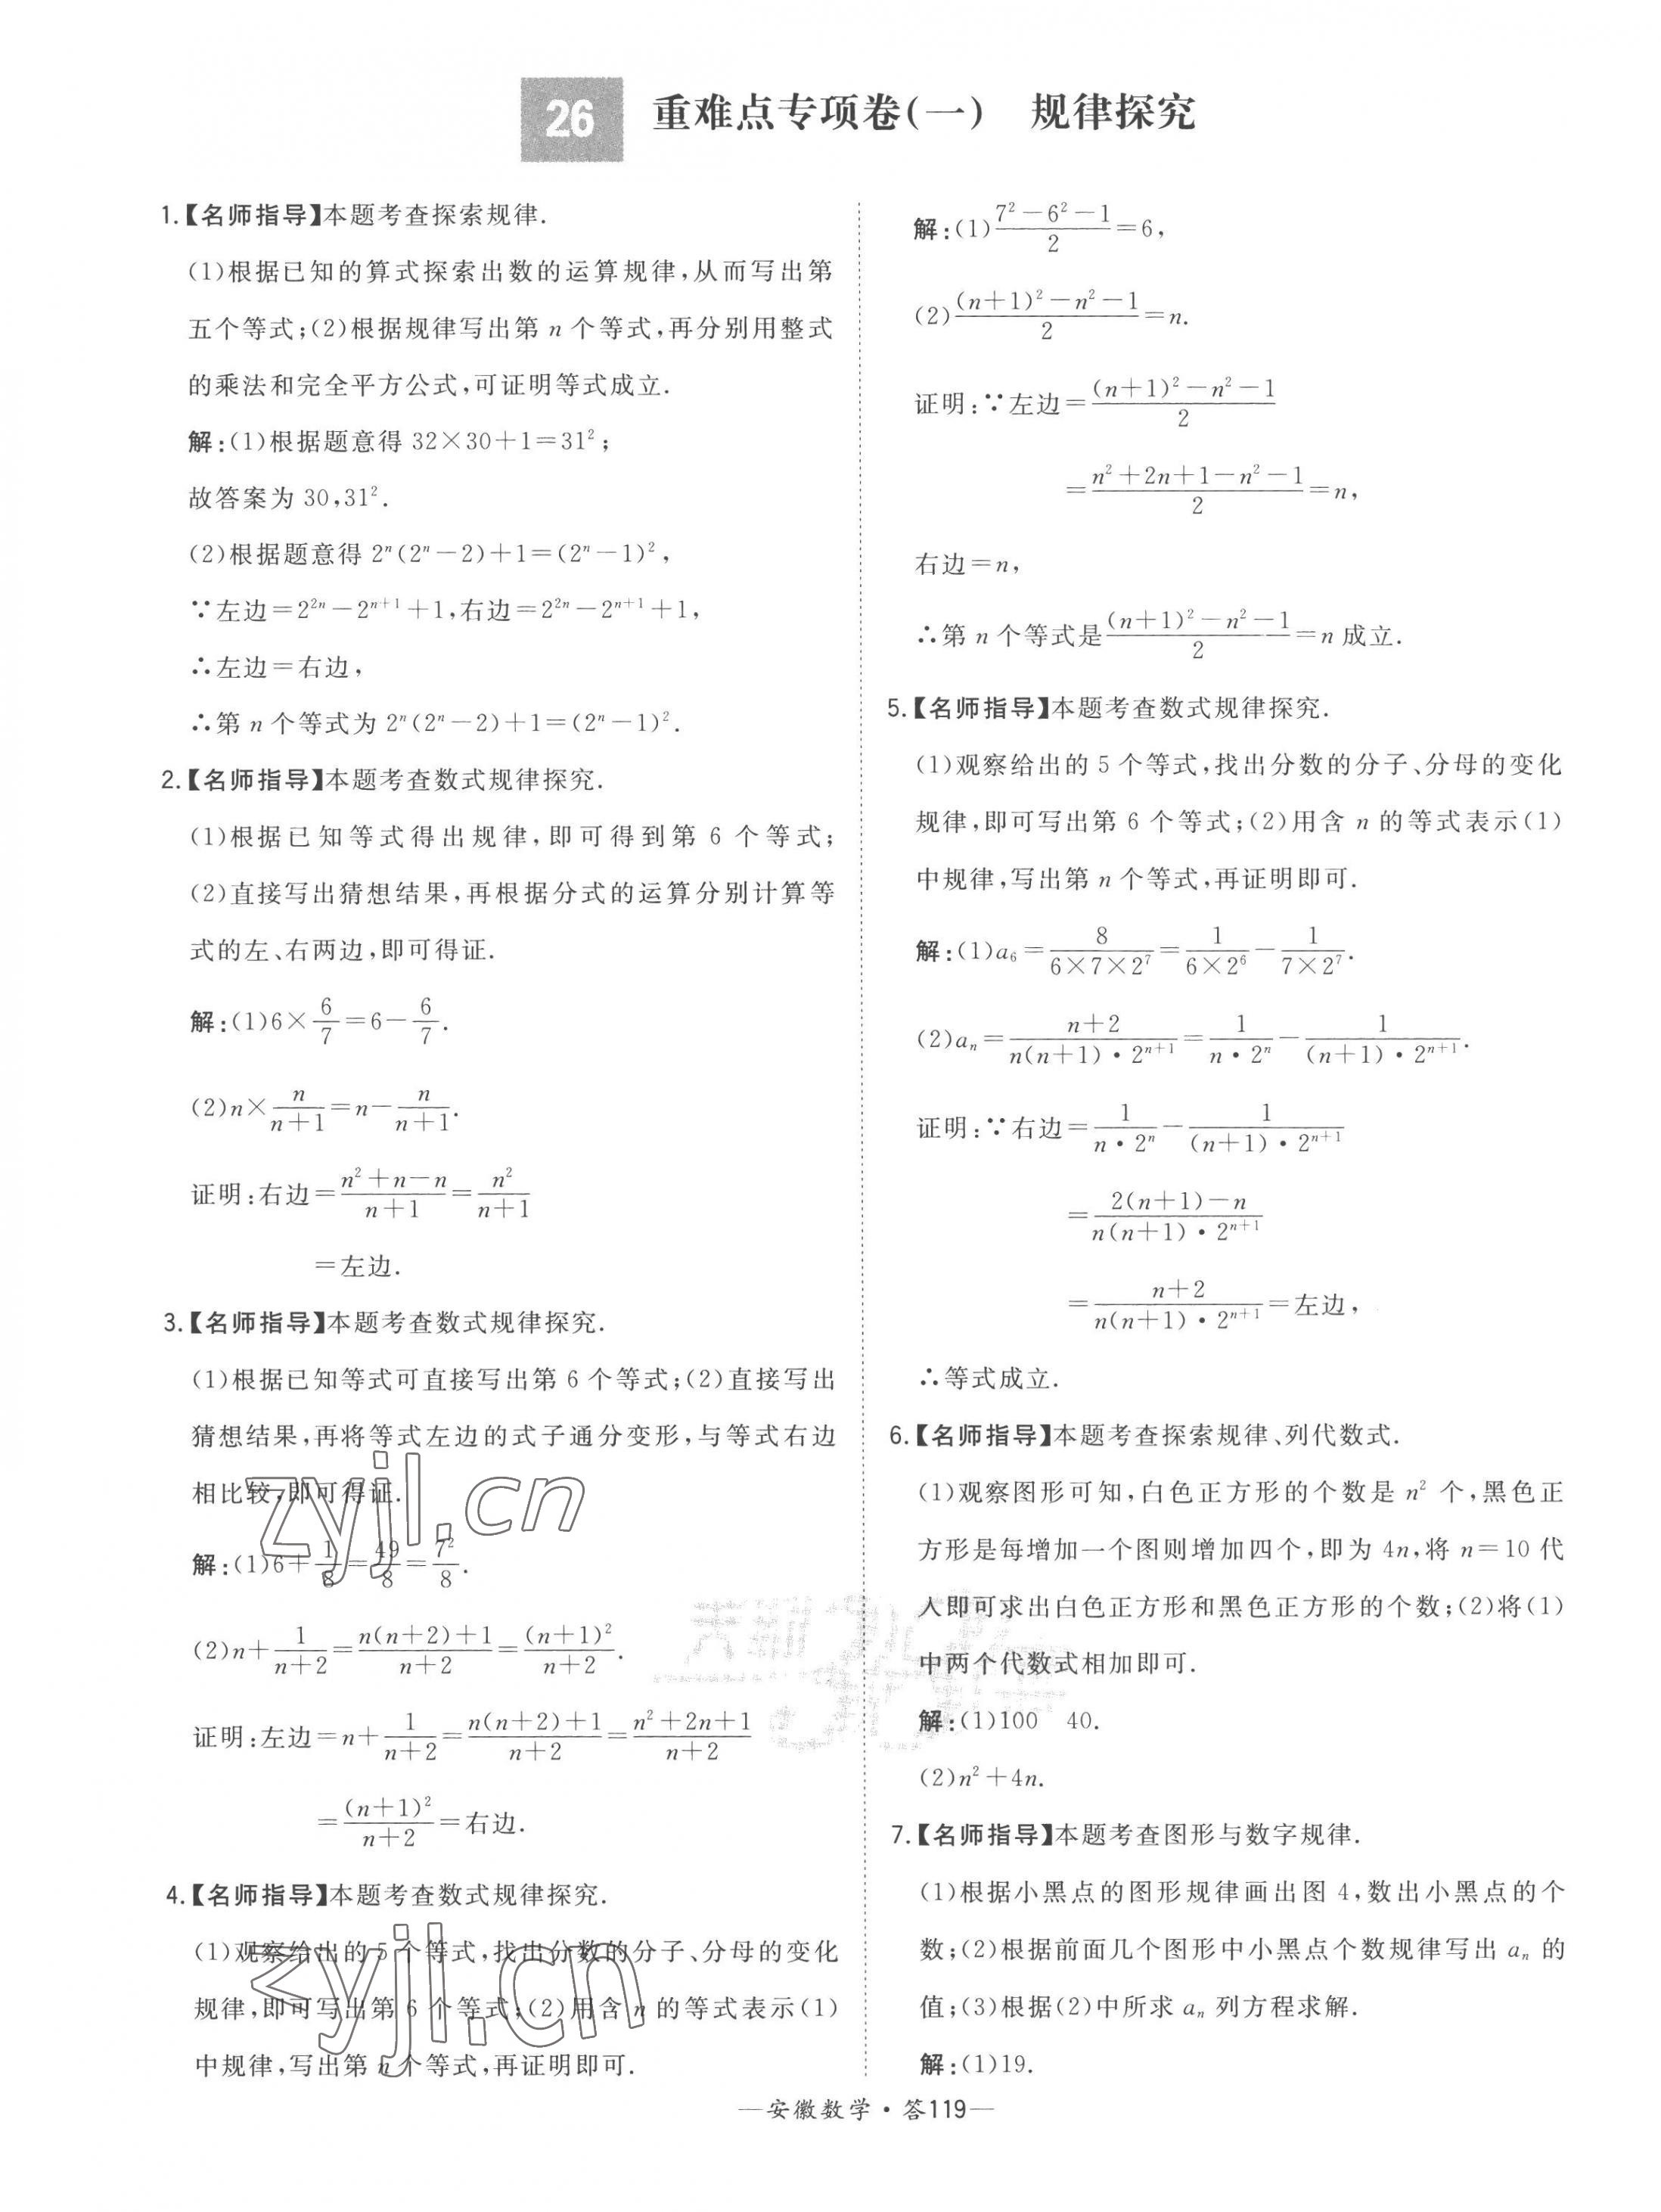 26 重难点专项卷(一) 规律探究
1.【名师指导】本题考查探索规律.
(1)根据已知的算式探索出数的运算规律,从而写出第
五个等式;(2)根据规律写出第 n 个等式,再分别用整式
的乘法和完全平方公式,可证明等式成立.
解:(1)根据题意得 32×30+1=31²;
故答案为 30,31².
(2)根据题意得 2ⁿ(2ⁿ-2)+1=(2ⁿ-1)²,
∵左边=2²ⁿ-2ⁿ⁺¹+1,右边=2²ⁿ-2ⁿ⁺¹+1,
∴左边=右边,
∴第 n 个等式为 2ⁿ(2ⁿ-2)+1=(2ⁿ-1)².
2.【名师指导】本题考查数式规律探究.
(1)根据已知等式得出规律,即可得到第 6 个等式;
(2)直接写出猜想结果,再根据分式的运算分别计算等
式的左、右两边,即可得证.
解:(1)6×6/7=6-6/7.
(2)n×n/(n+1)=n-n/(n+1).
证明:右边=(n²+n-n)/(n+1)=n²/(n+1)
=左边.
3.【名师指导】本题考查数式规律探究.
(1)根据已知等式可直接写出第 6 个等式;(2)直接写出
猜想结果,再将等式左边的式子通分变形,与等式右边
相比较,即可得证.
解:(1)6+1/8=49/8=7²/8.
(2)n+1/(n+2)=(n(n+2)+1)/(n+2)=(n+1)²/(n+2).
证明:左边=n+1/(n+2)=(n(n+2)+1)/(n+2)=(n²+2n+1)/(n+2)
=(n+1)²/(n+2)=右边.
4.【名师指导】本题考查数式规律探究.
(1)观察给出的 5 个等式,找出分数的分子、分母的变化
规律,即可写出第 6 个等式;(2)用含 n 的等式表示(1)
中规律,写出第 n 个等式,再证明即可.
解:(1)(7²-6²-1)/2=6,
(2)((n+1)²-n²-1)/2=n.
证明:∵左边=((n+1)²-n²-1)/2
=(n²+2n+1-n²-1)/2=n,
右边=n,
∴第 n 个等式是((n+1)²-n²-1)/2=n 成立.
5.【名师指导】本题考查数式规律探究.
(1)观察给出的 5 个等式,找出分数的分子、分母的变化
规律,即可写出第 6 个等式;(2)用含 n 的等式表示(1)
中规律,写出第 n 个等式,再证明即可.
解:(1)a₆=8/(6×7×2⁷)=1/(6×2⁶)-1/(7×2⁷).
(2)aₙ=(n+2)/(n(n+1)·2ⁿ⁺¹)=1/(n·2ⁿ)-1/((n+1)·2ⁿ⁺¹).
证明:∵右边=1/(n·2ⁿ)-1/((n+1)·2ⁿ⁺¹)
=(2(n+1)-n)/(n(n+1)·2ⁿ⁺¹)
=(n+2)/(n(n+1)·2ⁿ⁺¹)=左边,
∴等式成立.
6.【名师指导】本题考查探索规律、列代数式.
(1)观察图形可知,白色正方形的个数是 n² 个,黑色正
方形是每增加一个图则增加四个,即为 4n,将 n=10 代
人即可求出白色正方形和黑色正方形的个数;(2)将(1)
中两个代数式相加即可.
解:(1)100 40.
(2)n²+4n.
7.【名师指导】本题考查图形与数字规律.
(1)根据小黑点的图形规律画出图 4,数出小黑点的个
数;(2)根据前面几个图形中小黑点个数规律写出 aₙ 的
值;(3)根据(2)中所求 aₙ 列方程求解.
解:(1)19.
—安徽数学·答119—
zyjl.cn
zyjl.cn